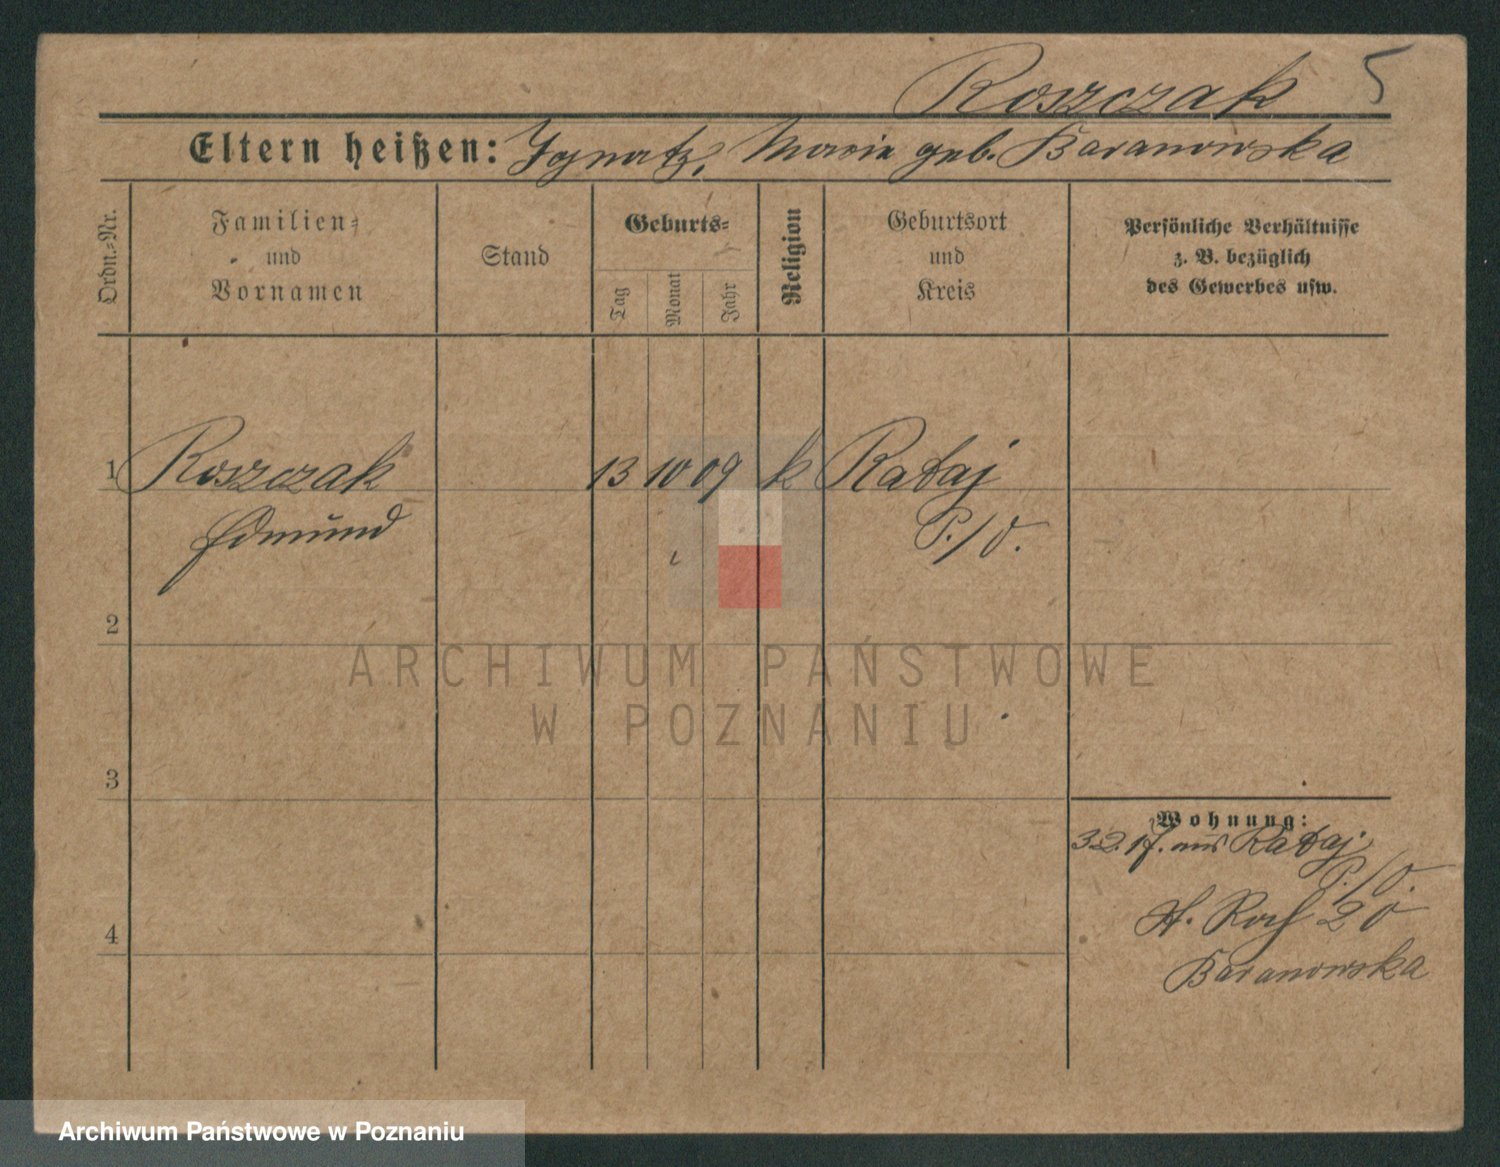 Roszczak 5
Eltern heißen: Ignatz, Marie geb. Baranowska
Ordn.-Nr.
Familien-
und
Vornamen
Stand
Geburts-
Tag
Monat
Jahr
Religion
Geburtsort
und
Kreis
Persönliche Verhältnisse
z. B. bezüglich
des Gewerbes usw.
1 Roszczak 13 10 09 k Rataj
Edmund P./O.
2
ARCHIWUM PAŃSTWOWE
W POZNANIU
3
Wohnung:
3.2.17. aus Rataj
P./O.
St. Roch 20
Baranowska
4
Archiwum Państwowe w Poznaniu